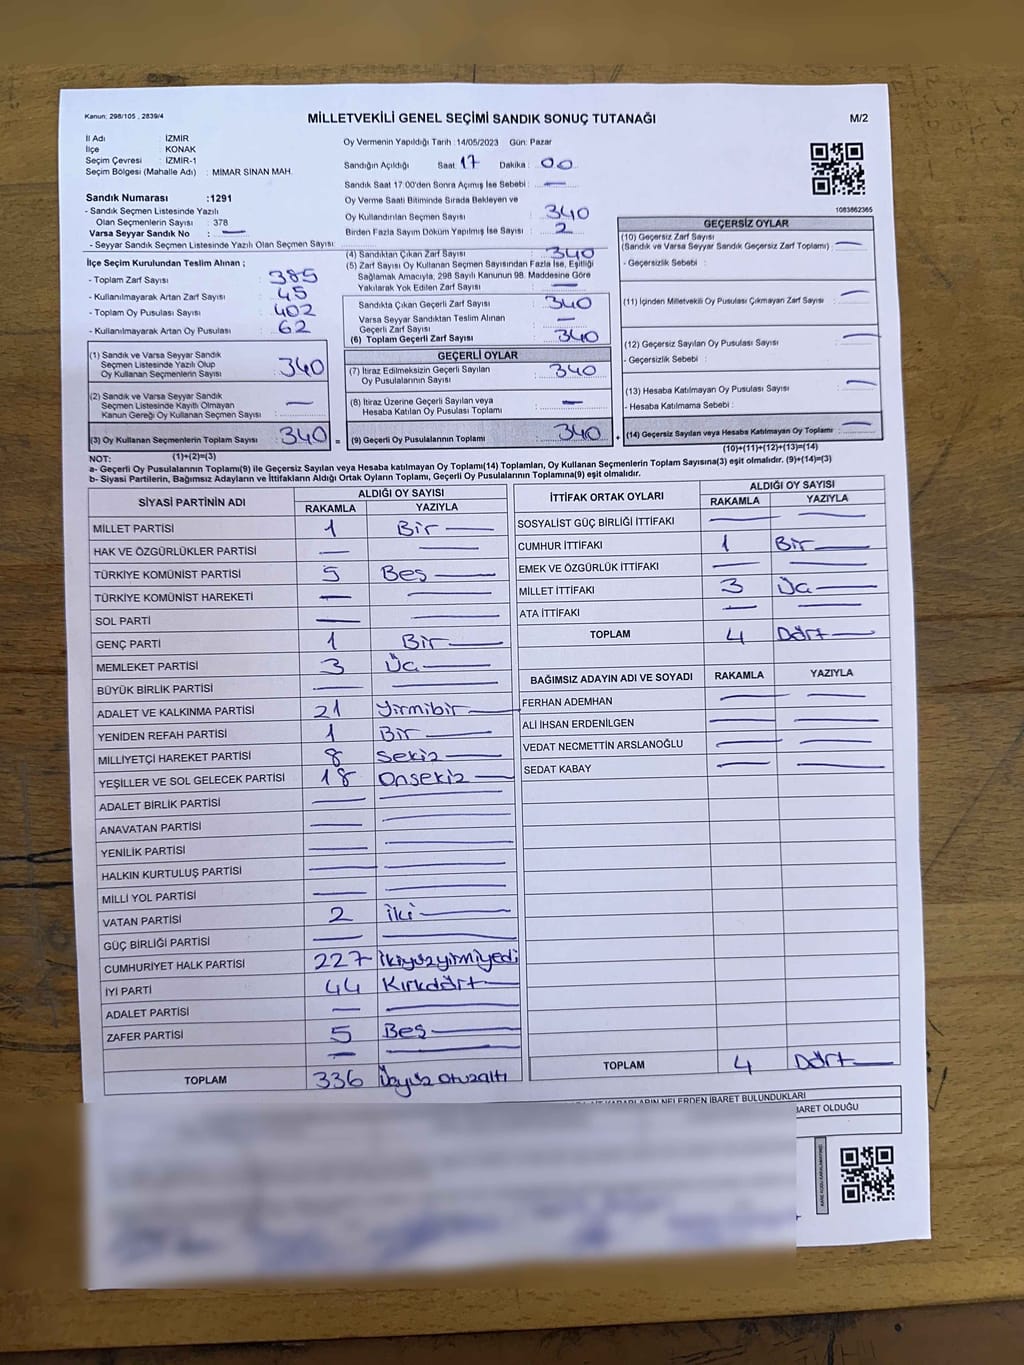 Kanun: 298/105 , 2839/4
MİLLETVEKİLİ GENEL SEÇİMİ SANDIK SONUÇ TUTANAĞI
M/2
İl Adı : İZMİR
İlçe : KONAK
Seçim Çevresi : İZMİR-1
Seçim Bölgesi (Mahalle Adı) : MİMAR SİNAN MAH.
Sandık Numarası :1291
- Sandık Seçmen Listesinde Yazılı
Olan Seçmenlerin Sayısı : 378
Varsa Seyyar Sandık No : —
- Seyyar Sandık Seçmen Listesinde Yazılı Olan Seçmen Sayısı:
Oy Vermenin Yapıldığı Tarih :14/05/2023 Gün: Pazar
Sandığın Açıldığı Saat: 17 Dakika : 00
Sandık Saat 17:00'den Sonra Açımış İse Sebebi : —
Oy Verme Saati Bitiminde Sırada Bekleyen ve
Oy Kullandırılan Seçmen Sayısı : 340
Birden Fazla Sayım Döküm Yapılmış İse Sayısı : 2
1083862365
İlçe Seçim Kurulundan Teslim Alınan ;
- Toplam Zarf Sayısı : 385
- Kullanılmayarak Artan Zarf Sayısı : 45
- Toplam Oy Pusulası Sayısı : 402
- Kullanılmayarak Artan Oy Pusulası : 62
(1) Sandık ve Varsa Seyyar Sandık
Seçmen Listesinde Yazılı Olup
Oy Kullanan Seçmenlerin Sayısı : 340
(2) Sandık ve Varsa Seyyar Sandık
Seçmen Listesinde Kayıtlı Olmayan
Kanun Gereği Oy Kullanan Seçmen Sayısı : —
(3) Oy Kullanan Seçmenlerin Toplam Sayısı : 340 =
(1)+(2)=(3)
(4) Sandıktan Çıkan Zarf Sayısı : 340
(5) Zarf Sayısı Oy Kullanan Seçmen Sayısından Fazla İse, Eşitliği
Sağlamak Amacıyla, 298 Sayılı Kanunun 98. Maddesine Göre
Yakılarak Yok Edilen Zarf Sayısı : —
Sandıkta Çıkan Geçerli Zarf Sayısı : 340
Varsa Seyyar Sandıktan Teslim Alınan
Geçerli Zarf Sayısı : —
(6) Toplam Geçerli Zarf Sayısı : 340
GEÇERLİ OYLAR
(7) İtiraz Edilmeksizin Geçerli Sayılan
Oy Pusulalarının Sayısı : 340
(8) İtiraz Üzerine Geçerli Sayılan veya
Hesaba Katılan Oy Pusulası Toplamı : —
(9) Geçerli Oy Pusulalarının Toplamı : 340 +
GEÇERSİZ OYLAR
(10) Geçersiz Zarf Sayısı
(Sandık ve Varsa Seyyar Sandık Geçersiz Zarf Toplamı) : —
- Geçersizlik Sebebi :
(11) İçinden Milletvekili Oy Pusulası Çıkmayan Zarf Sayısı : —
(12) Geçersiz Sayılan Oy Pusulası Sayısı : —
- Geçersizlik Sebebi :
(13) Hesaba Katılmayan Oy Pusulası Sayısı : —
- Hesaba Katılmama Sebebi :
(14) Geçersiz Sayılan veya Hesaba Katılmayan Oy Toplamı : —
(10)+(11)+(12)+(13)=(14)
NOT:
a- Geçerli Oy Pusulalarının Toplamı(9) ile Geçersiz Sayılan veya Hesaba katılmayan Oy Toplamı(14) Toplamları, Oy Kullanan Seçmenlerin Toplam Sayısına(3) eşit olmalıdır. (9)+(14)=(3)
b- Siyasi Partilerin, Bağımsız Adayların ve İttifakların Aldığı Ortak Oyların Toplamı, Geçerli Oy Pusulalarının Toplamına(9) eşit olmalıdır.
SİYASİ PARTİNİN ADI ALDIĞI OY SAYISI
RAKAMLA YAZIYLA
MİLLET PARTİSİ 1 Bir
HAK VE ÖZGÜRLÜKLER PARTİSİ — —
TÜRKİYE KOMÜNİST PARTİSİ 5 Beş —
TÜRKİYE KOMÜNİST HAREKETİ — —
SOL PARTİ — —
GENÇ PARTİ 1 Bir —
MEMLEKET PARTİSİ 3 Üç —
BÜYÜK BİRLİK PARTİSİ — —
ADALET VE KALKINMA PARTİSİ 21 Yirmibir —
YENİDEN REFAH PARTİSİ 1 Bir —
MİLLİYETÇİ HAREKET PARTİSİ 8 Sekiz —
YEŞİLLER VE SOL GELECEK PARTİSİ 18 Onsekiz —
ADALET BİRLİK PARTİSİ — —
ANAVATAN PARTİSİ — —
YENİLİK PARTİSİ — —
HALKIN KURTULUŞ PARTİSİ — —
MİLLİ YOL PARTİSİ — —
VATAN PARTİSİ 2 İki —
GÜÇ BİRLİĞİ PARTİSİ — —
CUMHURİYET HALK PARTİSİ 227 İkiyüzyirmiyedi
İYİ PARTİ 44 Kırkdört —
ADALET PARTİSİ — —
ZAFER PARTİSİ 5 Beş —
— —
TOPLAM 336 Üçyüz otuzaltı
İTTİFAK ORTAK OYLARI ALDIĞI OY SAYISI
RAKAMLA YAZIYLA
SOSYALİST GÜÇ BİRLİĞİ İTTİFAKI — —
CUMHUR İTTİFAKI 1 Bir —
EMEK VE ÖZGÜRLÜK İTTİFAKI — —
MİLLET İTTİFAKI 3 Üç —
ATA İTTİFAKI — —
TOPLAM 4 Dört —
BAĞIMSIZ ADAYIN ADI VE SOYADI RAKAMLA YAZIYLA
FERHAN ADEMHAN — —
ALİ İHSAN ERDENİLGEN — —
VEDAT NECMETTİN ARSLANOĞLU — —
SEDAT KABAY — —
TOPLAM 4 Dört —
NELERDEN İBARET BULUNDUKLARI
BARET OLDUĞU